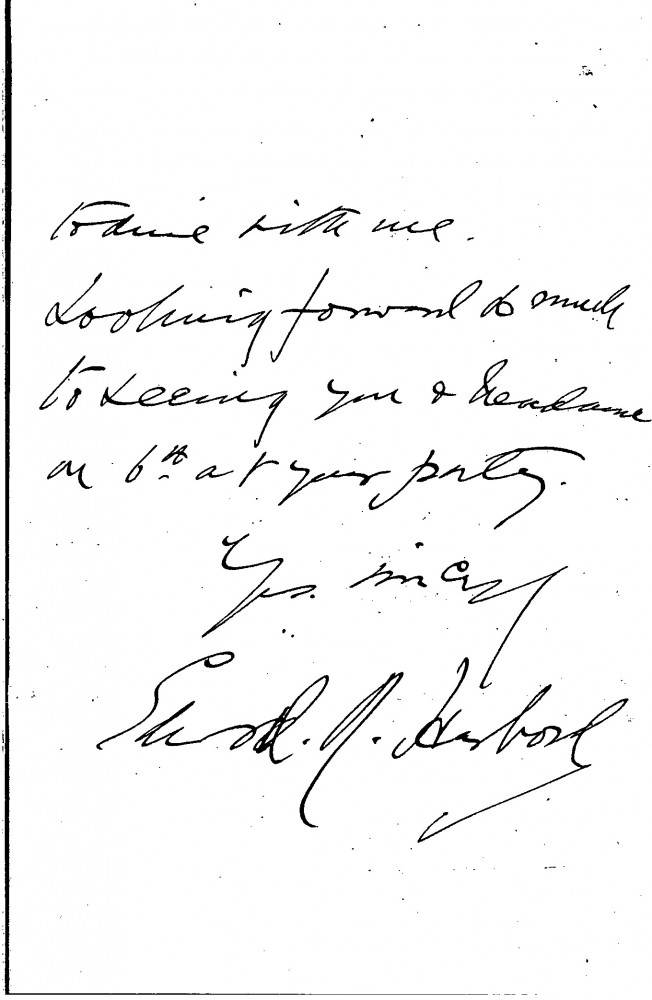 to dine with me.
Looking forward so much
to seeing you & Madame
on 6th at your party.
Yrs. sincly